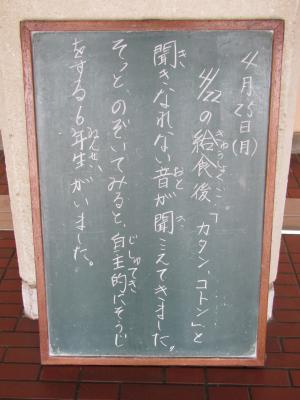 4月25日(月)
4/22の給食後、「カタン、コトン」と
聞きなれない音が聞こえてきました。
そっと、のぞいてみると、自主的にそうじ
をする6年生がいました。